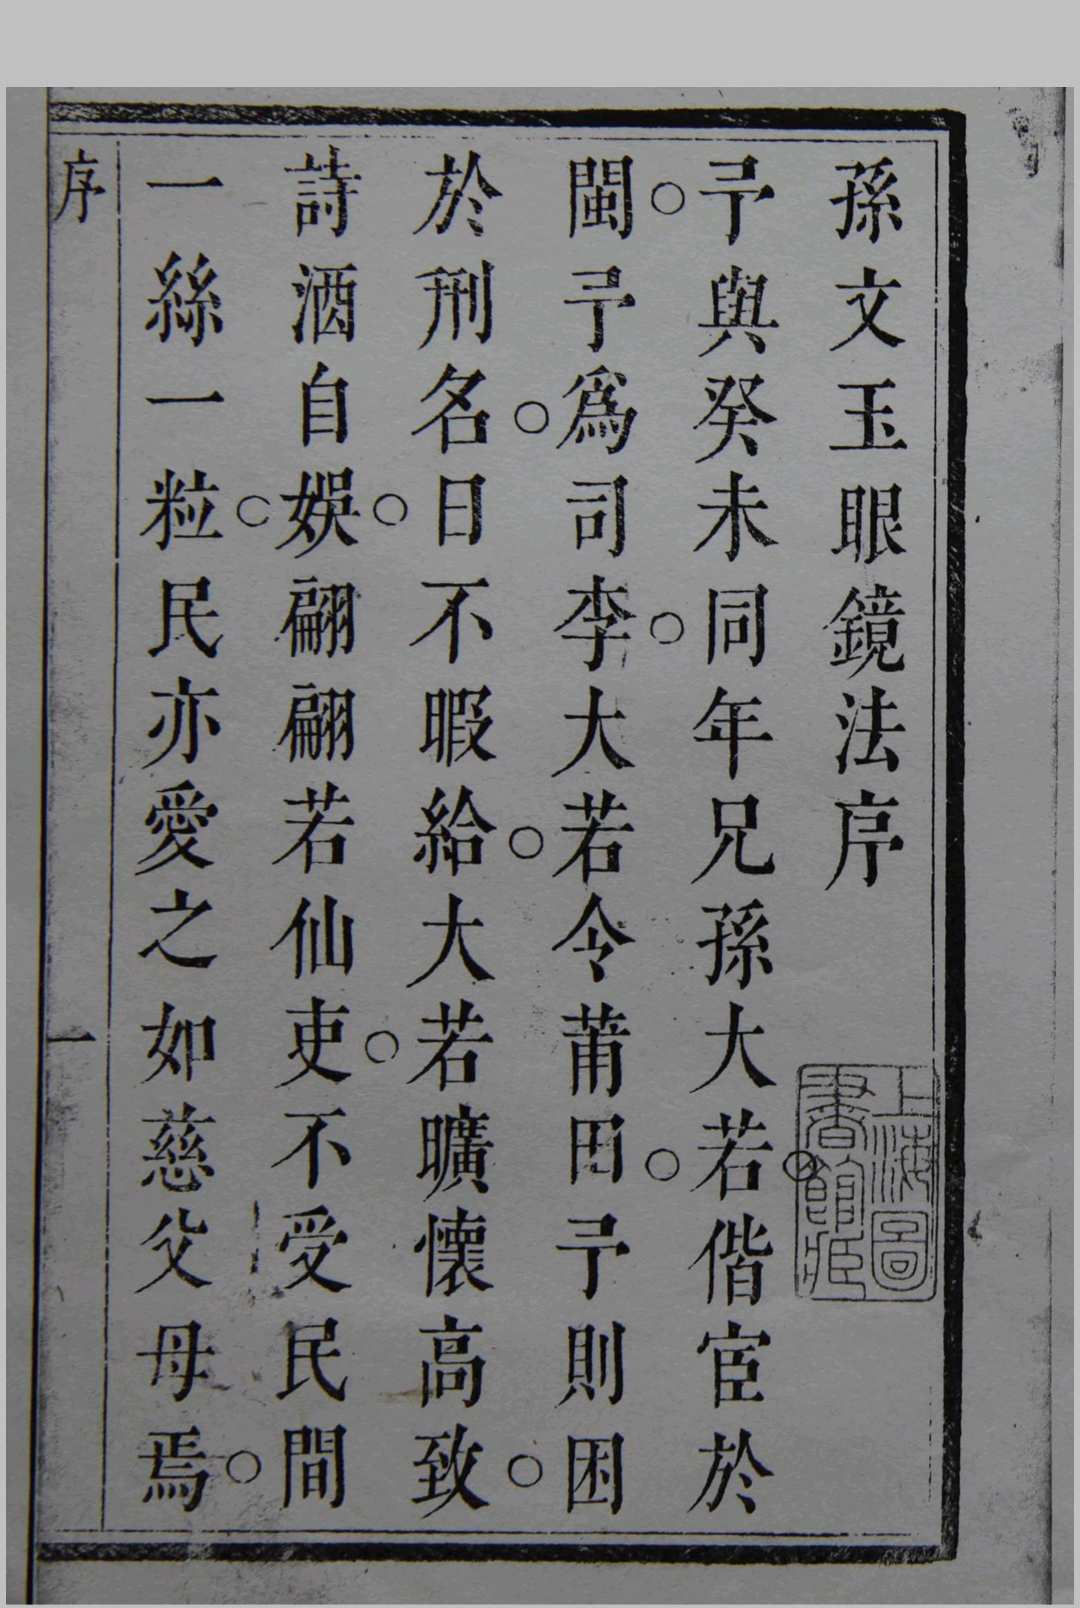 孫文玉眼鏡法序
予與癸未同年兄孫大若○偕宦於
閩○予爲司李○大若令莆田○予則困
於刑名○日不暇給○大若曠懷高致○
詩酒自娛○翩翩若仙吏○不受民間
一絲一粒○民亦愛之如慈父母焉○
序
一
上海圖
書館藏